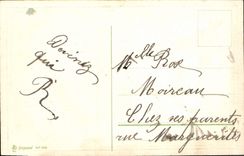 Devinez
qui
R
Mlle Rose
Moireau
Chez ses parents
rue Marguerites